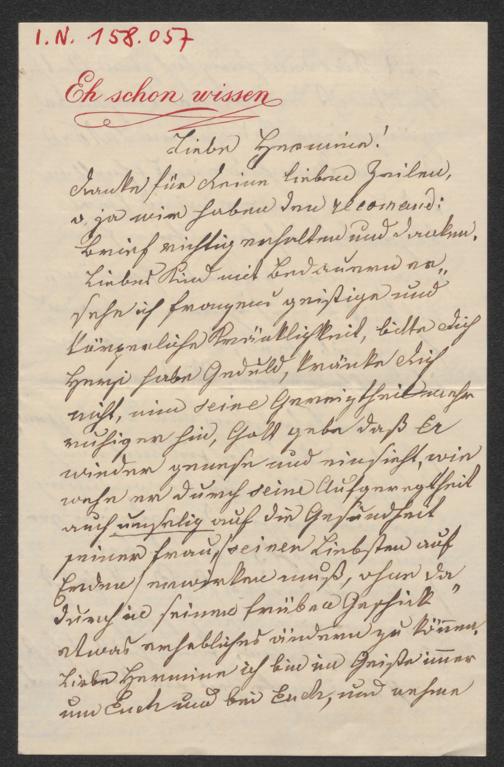 I.N. 158.057
Eh schon wissen
Liebe Hermine!
Danke für Deine lieben Zeilen,
o ja wir haben den recomand:
Brief richtig erhalten und danken.
Liebes Kind mit Bedauern er-
sehe ich franzens geistige und
körperliche Kränklichkeit, bitte Dich
Herzi habe Geduld, kränke Dich
nicht, nim seine Gereiztheit mehr
ruhiger hin, Gott gebe daß Er
wieder genese und einsieht, wie
wehe er durch seine Aufgeregtheit
auch unselig auf die Gesundheit
seiner Frau, seiner Liebsten auf
Erden, einwirken muß, ohne da
durch in seinem trüben Geschick
etwas erhebliches ändern zu können.
Liebe Hermine ich bin im Geiste immer
um Euch und bei Euch, und nehme